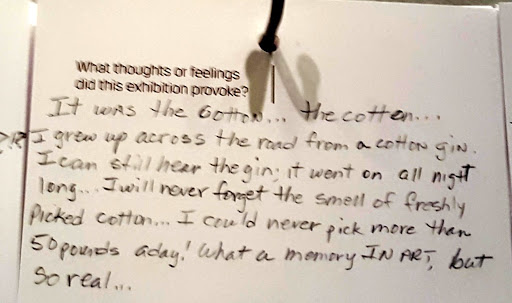 What thoughts or feelings
did this exhibition provoke?
It was the Cotton... the cotton...
I grew up across the road from a cotton gin.
I can still hear the gin; it went on all night
long... I will never forget the smell of freshly
Picked cotton... I could never pick more than
50 pounds a day! What a memory IN ART, but
So real...